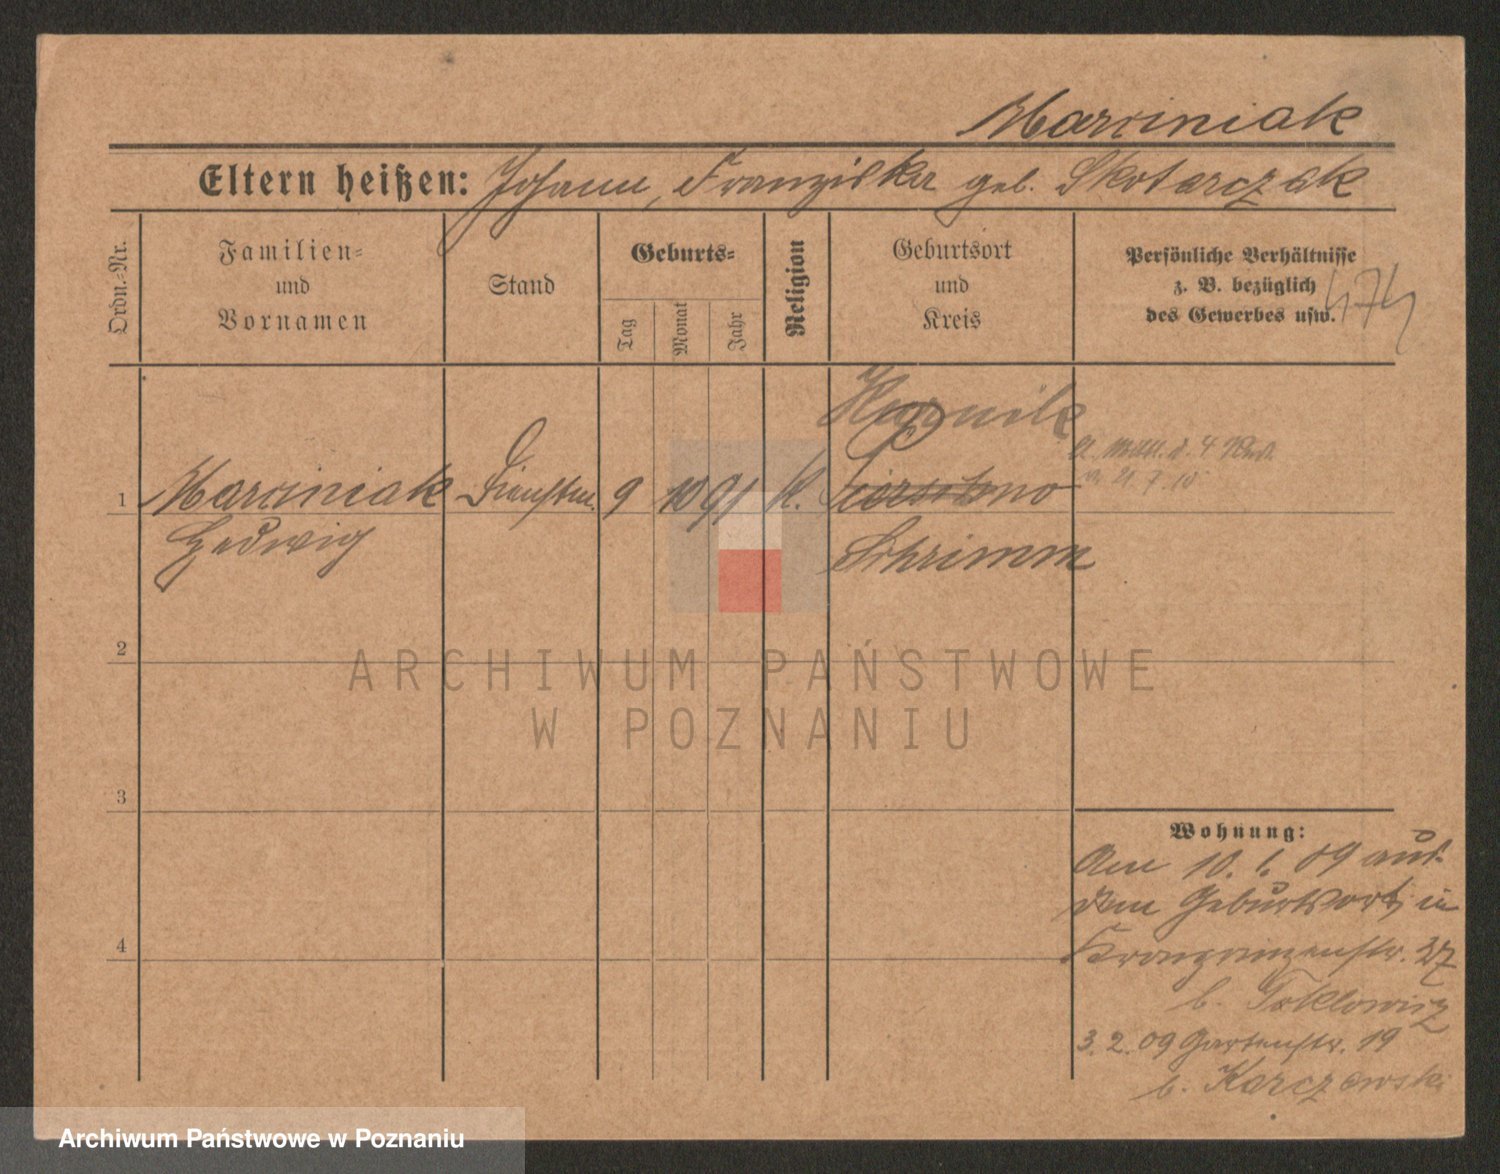 Marciniak
Eltern heißen: Johann, Franziska geb. Skotarczak
Ordn.-Nr.
Familien- und Vornamen
Stand
Geburts-
Tag
Monat
Jahr
Religion
Geburtsort und Kreis
Persönliche Verhältnisse
z. B. bezüglich
des Gewerbes usw.
474
1 Marciniak Dienstm. 9 10 91 k.
Hedwig
Schrimm
2
ARCHIWUM PAŃSTWOWE
W POZNANIU
3
Wohnung:
Am 10. 1. 09 aus
dem Geburtsort in
4
Kronprinzenstr. 37
b.
3. 2. 09 Gartenstr. 19
b. Karczewski
Archiwum Państwowe w Poznaniu